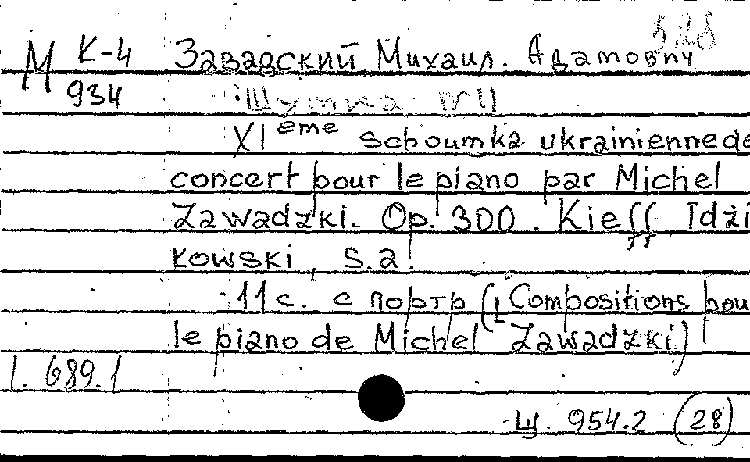 М К-4 Завадский Михаил. Адамович 528
934 Шумка №11
XI eme schoumka ukrainienne de
concert pour le piano par Michel
Zawadzki. Op. 300. Kieff Idzi
kowski, s.a.
11 с. с портр (Compositions pou
le piano de Michel Zawadzki)
1.689.1
Щ. 954.2 (28)